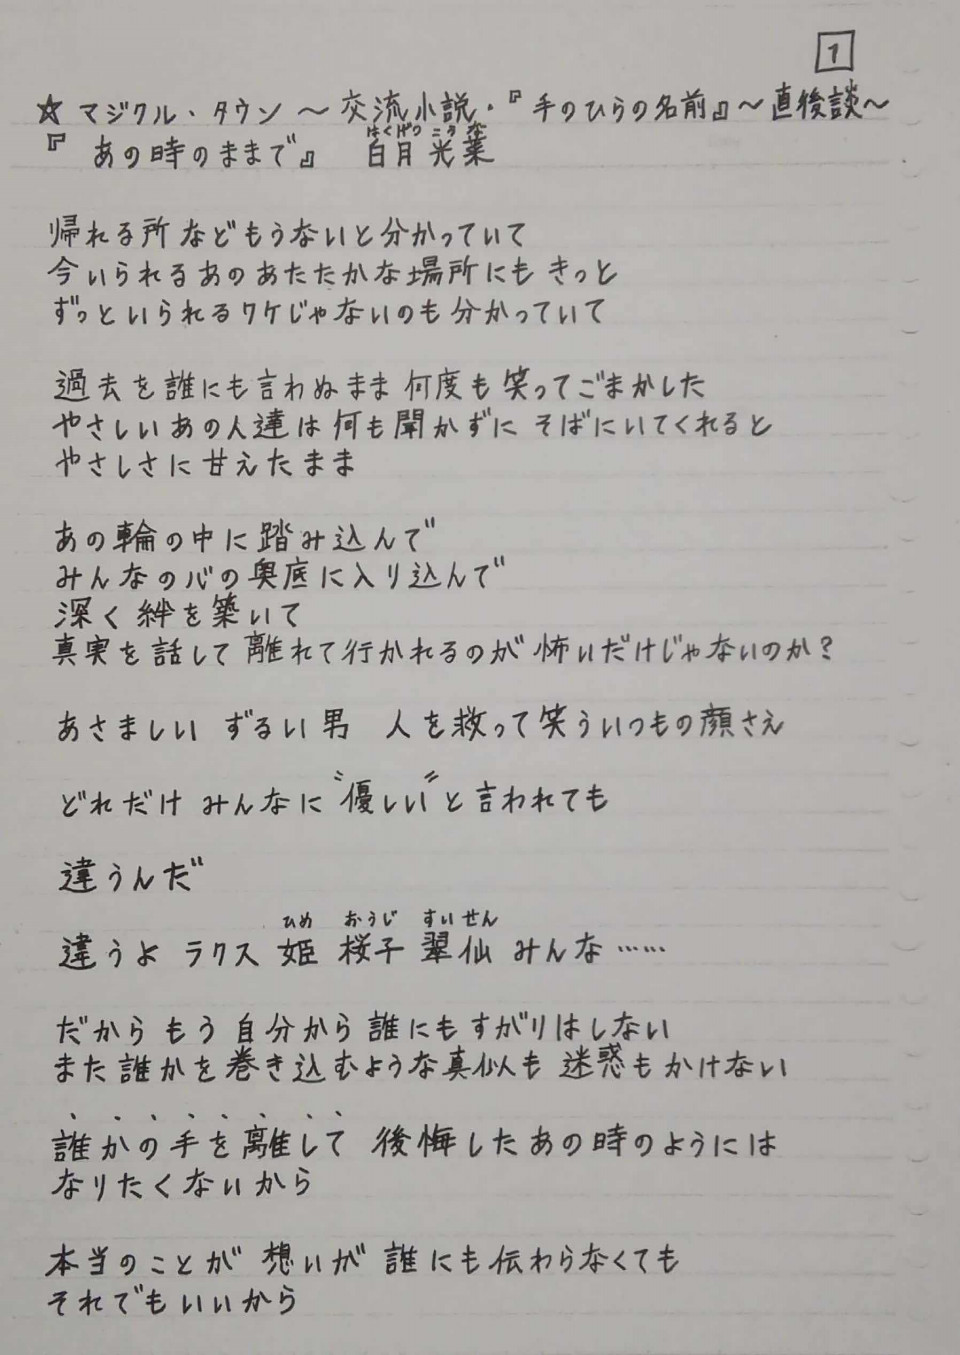 1
☆ マジクル・タウン ～ 交流小説・『手のひらの名前』～ 直後談～
『あの時のままで』 白月光菜
はくげつ こうな
帰れる所などもうないと分かっていて
今いられるあのあたたかな場所にも きっと
ずっといられるワケじゃないのも分かっていて
過去を誰にも言わぬまま 何度も笑ってごまかした
やさしいあの人達は何も聞かずに そばにいてくれると
やさしさに甘えたまま
あの輪の中に踏み込んで
みんなの心の奥底に入り込んで
深く絆を築いて
真実を話して離れて行かれるのが怖いだけじゃないのか？
あさましい ずるい男 人を救って笑ういつもの顔さえ
どれだけ みんなに〝優しい〟と言われても
違うんだ
ひめ おうじ すいせん
違うよ ラクス 姫 桜子 翠仙 みんな……
だからもう自分から誰にもすがりはしない
また誰かを巻き込むような真似も 迷惑もかけない
誰かの手を離して 後悔したあの時のようには
なりたくないから
本当のことが 想いが 誰にも伝わらなくても
それでもいいから